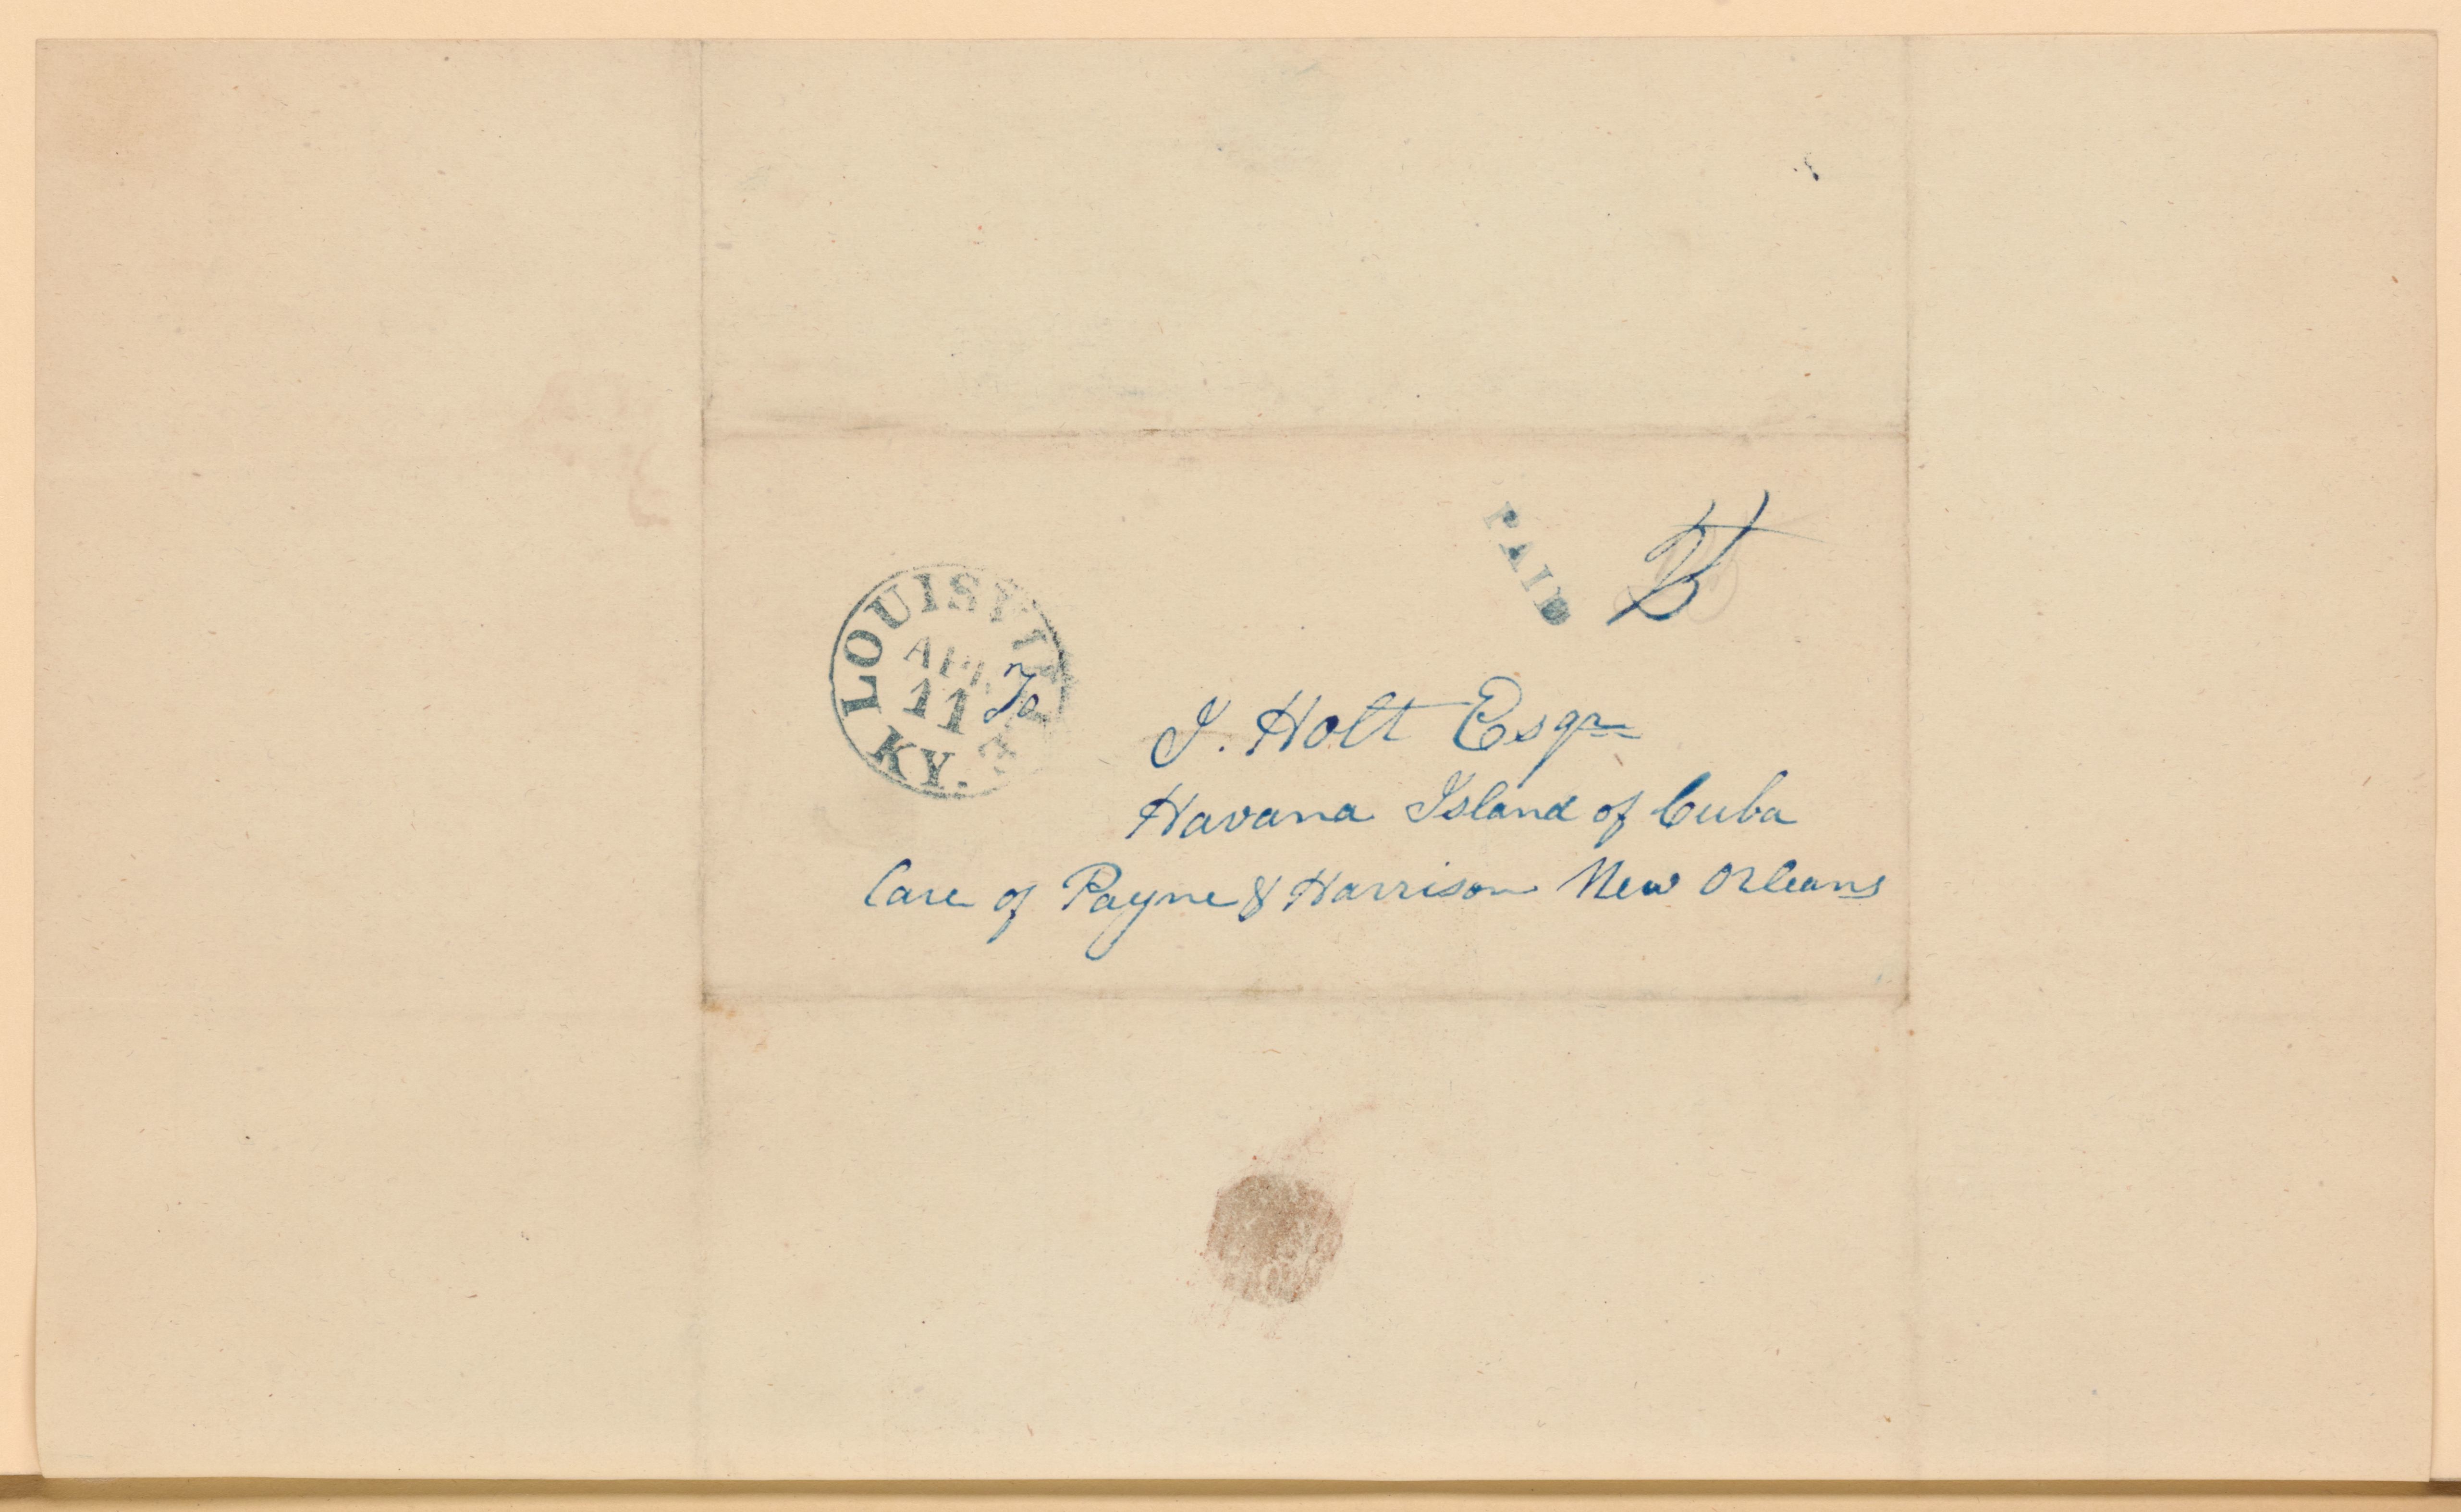 PAID 25
LOUISVILLE
APR.
11
KY.
To
J. Holt Esqr
Havana Island of Cuba
Care of Payne & Harrison New Orleans